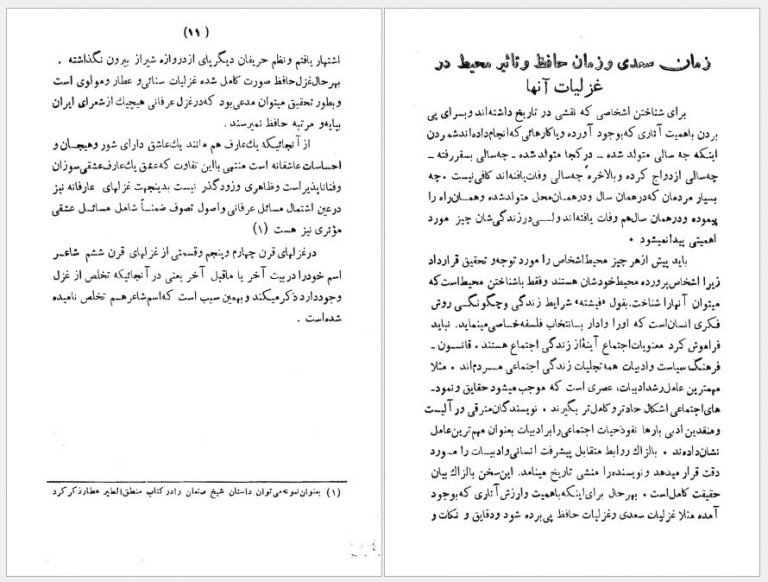 (۱۱)
اشتهار یافتم و نظم حریفان دیگر پای از دروازه شیراز بیرون نگذاشته .
بهر حال غزل حافظ صورت کامل شده غزلیات سنائی و عطار و مولوی است
و بطور تحقیق میتوان مدعی بود که در غزل عرفانی هیچیک از شعرای ایران
بپایه و مرتبه حافظ نمیرسند .
از آنجائیکه یك عارف هم مانند یك عاشق دارای شور و هیجان و
احساسات عاشقانه است منتهی با این تفاوت که عشق یك عارف عشقی سوزان
و فنا ناپذیر است و ظاهری و زودگذر نیست بدینجهت غزلهای عارفانه نیز
در عین اشتمال مسائل عرفانی و اصول تصوف ضمناً شامل مسائل عشقی
مؤثری نیز هست (۱)
در غزلهای قرن چهارم و پنجم و قسمتی از غزلهای قرن ششم شاعر
اسم خود را در بیت آخر یا ماقبل آخر یعنی در آنجائیکه تخلص از غزل
وجود دارد ذکر میکند و بهمین سبب است که اسم شاعر هم تخلص نامیده
شده است .
(۱) بعنوان نمونه می توان داستان شیخ صنعان را در کتاب منطق الطیر عطار ذکر کرد
زمان سعدی و زمان حافظ و تاثیر محیط در
غزلیات آنها
برای شناختن اشخاصی که نقشی در تاریخ داشته اند و برای پی
بردن با همیت آثاری که بوجود آورده و یا کارهائی که انجام داده اند شمردن
اینکه چه سالی متولد شده ـ در کجا متولد شده ـ چه سالی بسفر رفته ـ
چه سالی ازدواج کرده و بالاخره چه سالی وفات یافته اند کافی نیست . چه
بسیار مردمان که در همان سال و در همان محل متولد شده و همان راه را
پیموده و در همان سال هم وفات یافته اند ولی در زندگی شان چیز مورد
اهمیتی پیدا نمیشود .
باید پیش از هر چیز محیط اشخاص را مورد توجه و تحقیق قرار داد
زیرا اشخاص پرورده محیط خودشان هستند و فقط با شناختن محیط است که
میتوان آنها را شناخت. بقول «فیشته» شرایط زندگی و چگونگی روش
فکری انسان است که او را وادار با نتخاب فلسفه خاصی مینماید. نباید
فراموش کرد معنویات اجتماع آینهٔ از زندگی اجتماع هستند . قانون ـ
فرهنگ سیاست و ادبیات همه تجلیات زندگی اجتماعی مردم اند . مثلا
مهمترین عامل رشد ادبیات، عصری است که موجب میشود حقایق و نمود-
های اجتماعی اشکال حادتر و کامل تر بگیرند . نویسندگان مترقی و رآلیست
و منقدین ادبی بارها نفوذ حیات اجتماعی را بر ادبیات بعنوان مهم ترین عامل
نشان داده اند . بالزاك روابط متقابل پیشرفت انسانی و ادبیات را مورد
دقت قرار میدهد و نویسنده را منشی تاریخ مینامد. این سخن بالزاك بیان
حقیقت کامل است . بهر حال برای اینکه باهمیت و ارزش آثاری که بوجود
آمده مثلا غزلیات سعدی و غزلیات حافظ پی برده شود و دقایق و نکات و